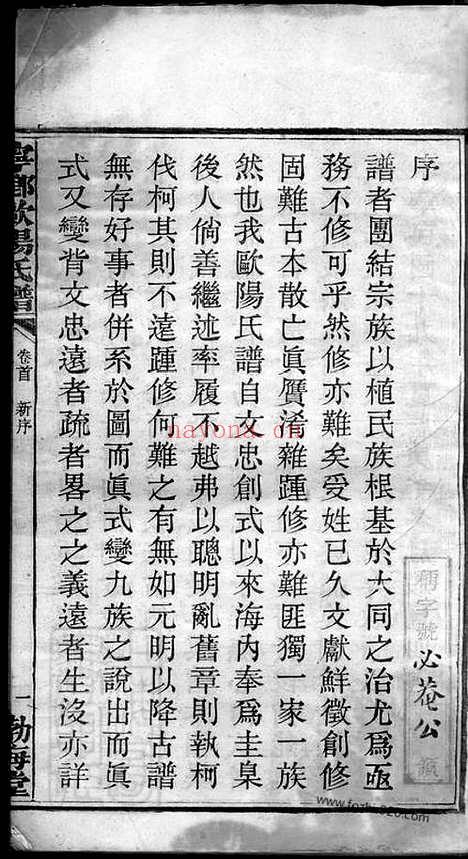 序
譜者團結宗族以植民族根基於大同之治尤爲亟
務不修可乎然修亦難矣受姓已久文獻鮮徵創修
固難古本散亡眞贋淆雜踵修亦難匪獨一家一族
然也我歐陽氏譜自文忠創式以來海內奉爲圭臬
後人倘善繼述率履不越弗以聰明亂舊章則執柯
伐柯其則不遠踵修何難之有無如元明以降古譜
無存好事者併系於圖而眞式變九族之說出而眞
式又變背文忠遠者疏者畧之之義遠者生沒亦詳
寧鄉歐陽氏譜
卷首 新序
一
渤海堂
字號
必菴公
nayona.cn